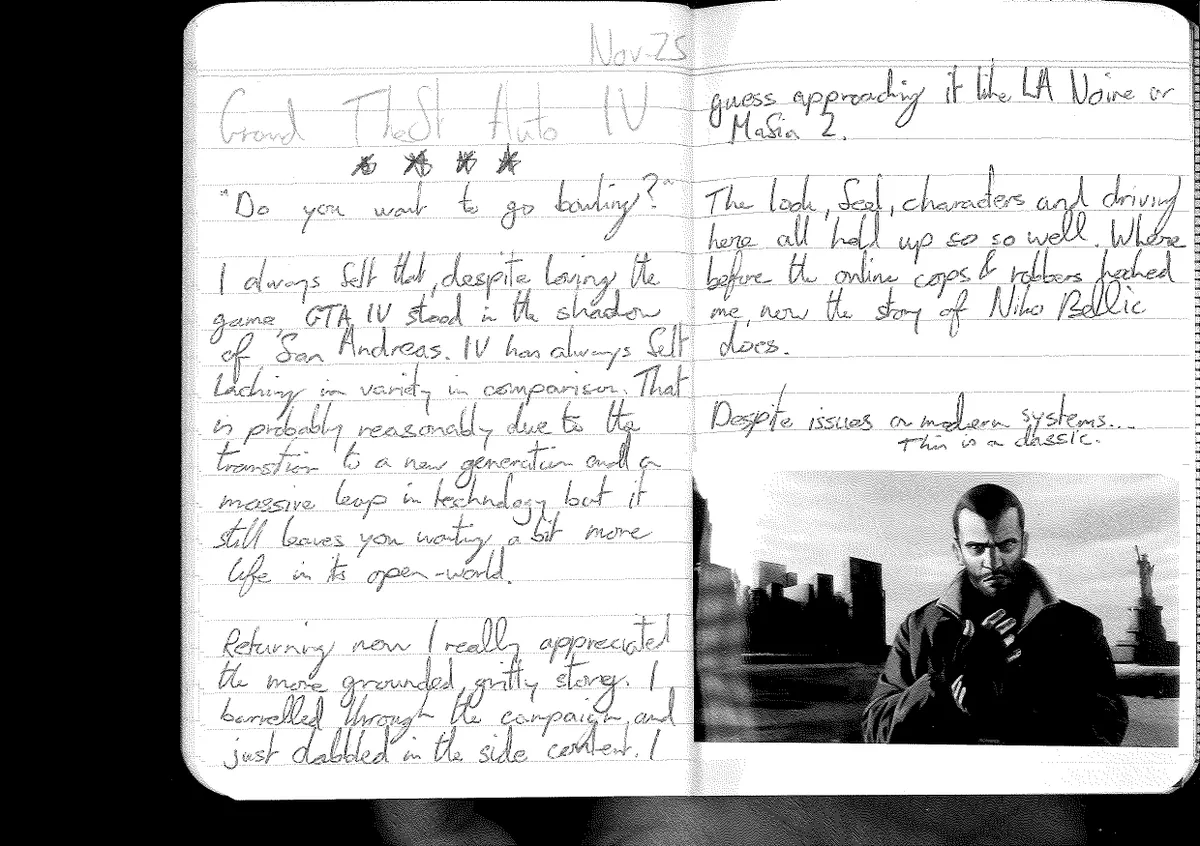 Nov-25
Grand Theft Auto IV
"Do you want to go bowling?"
I always felt that, despite loving the
game, GTA IV stood in the shadow
of San Andreas. IV has always felt
lacking in variety in comparison. That
is probably reasonably due to the
transtion to a new generation and a
massive leap in technology but it
still leaves you wanting a bit more
life in its open-world.
Returning now I really appreciated
the more grounded, gritty story. I
barrelled through the campaign and
just dabbled in the side content. I
guess approaching it like LA Noire or
Mafia 2.
The look, feel, characters and driving
here all hold up so so well. Where
before the online cops & robbers hooked
me, now the story of Niko Bellic
does.
Despite issues on modern systems...
This is a classic.